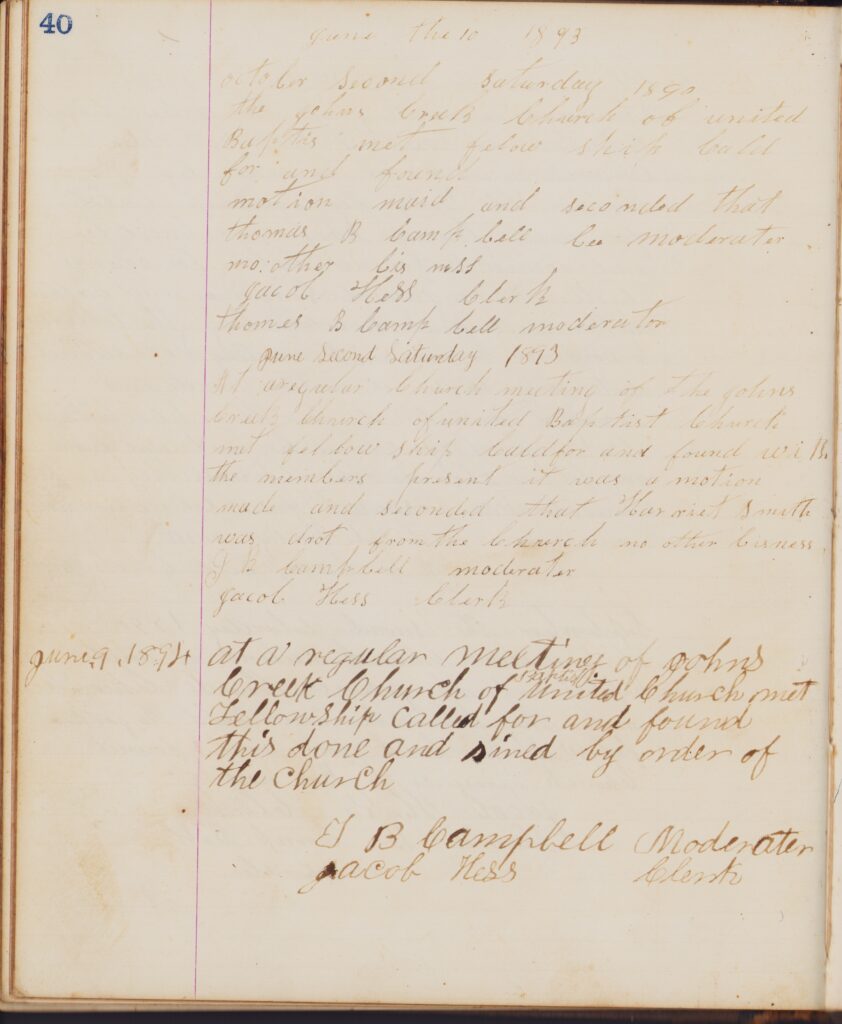 40
june the 10 1893
october second saturday 1890
the johns Creek Church of united
Baptis met felow ship Cald
for and found
motion maid and seconded that
thomas B Camp bell be moderater
no other bis ness
jacob Hess Clerk
thomes B Camp bell moderator
june second saturday 1893
At aregular Church meeting of the johns
Creek Church ofunited Baptist Church
met fellow ship Caldfor and found with
the members present it was a motion
made and seconded that Harriet Smith
was drot from the Church no other bisness
J B Campbell moderater
jacob Hess Clerk
june.9.1894 at a regular meeting of johns
Creek Church of united Church met
Fellowship Called for and found
this done and sined by order of
the Church
T B Campbell Moderater
jacob Hess Clerk